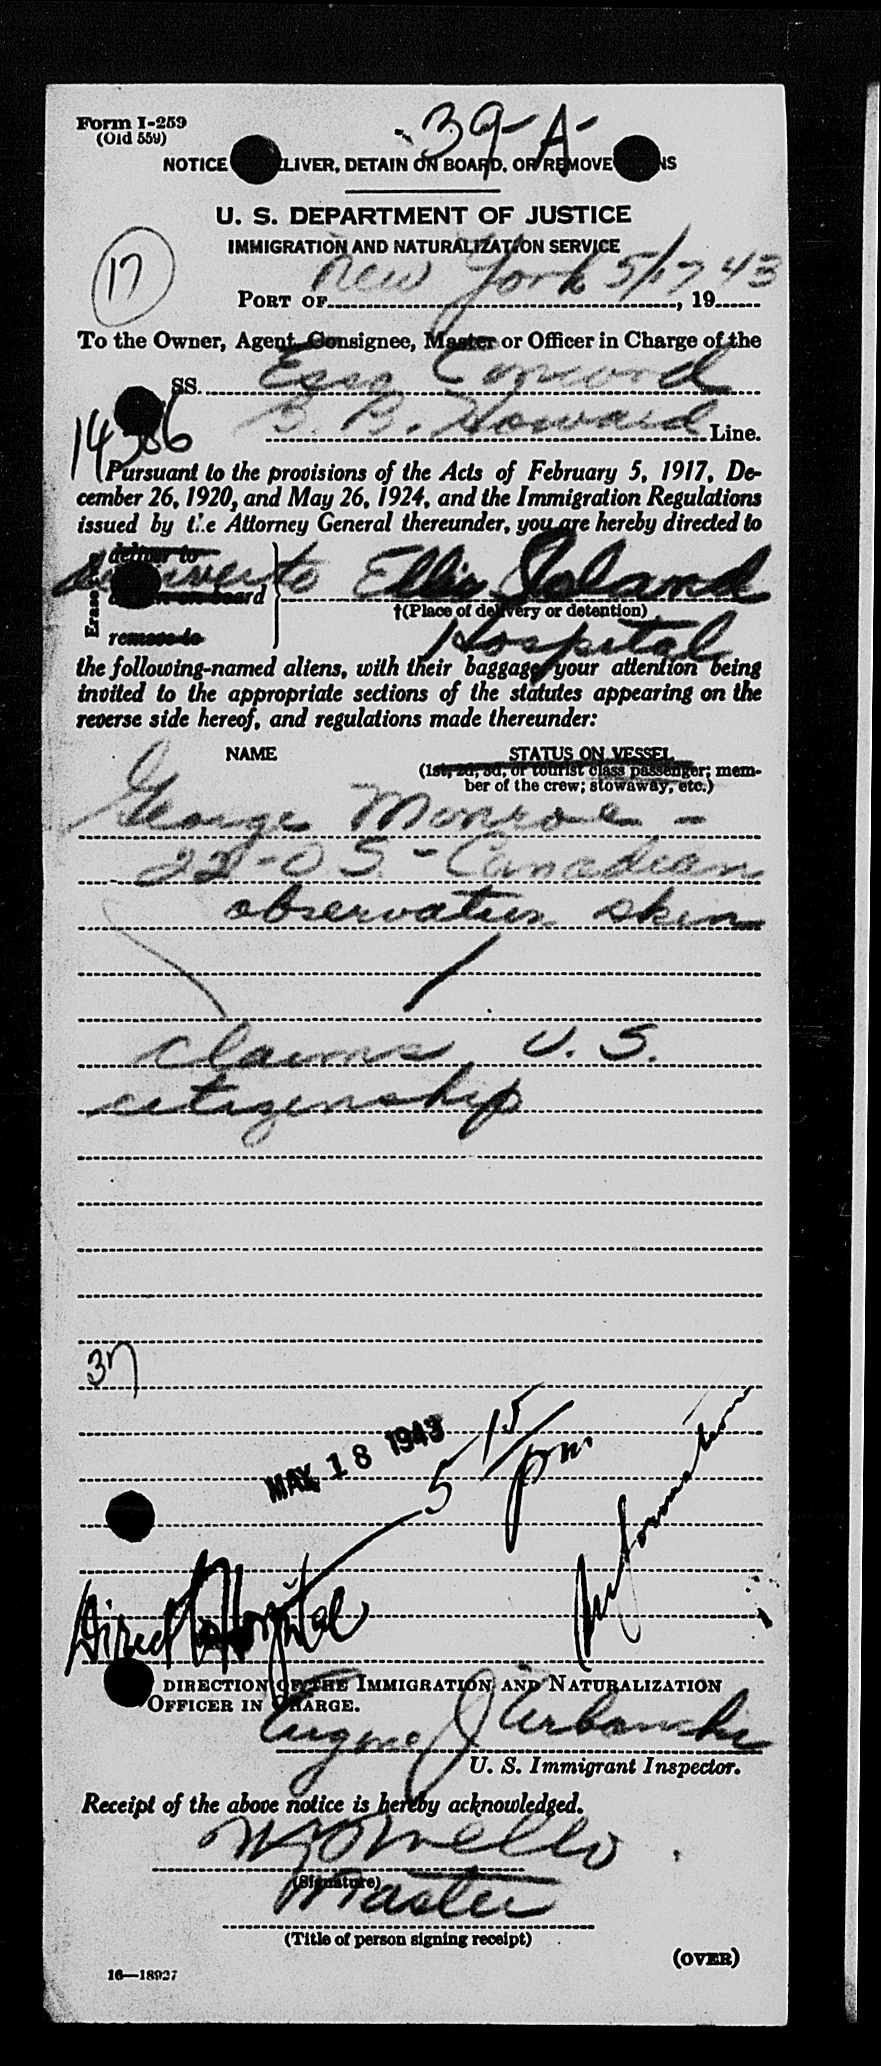 Form I-259
(Old 559)
39-A-
NOTICE LIVER, DETAIN ON BOARD, OR REMOVE NS
U. S. DEPARTMENT OF JUSTICE
IMMIGRATION AND NATURALIZATION SERVICE
17
PORT OF New York 5/17, 1943
To the Owner, Agent, Consignee, Master or Officer in Charge of the
SS. Esso Concord
B. B. Howard Line.
Pursuant to the provisions of the Acts of February 5, 1917, De-
cember 26, 1920, and May 26, 1924, and the Immigration Regulations
issued by the Attorney General thereunder, you are hereby directed to
deliver to
Erase
deliver to Ellis Island
on board
†(Place of delivery or detention)
remove to
Hospital
the following-named aliens, with their baggage, your attention being
invited to the appropriate sections of the statutes appearing on the
reverse side hereof, and regulations made thereunder:
NAME STATUS ON VESSEL
(1st, 2d, 3d, or tourist class passenger; mem-
ber of the crew; stowaway, etc.)
George Monroe -
22-OS- Canadian
observation skin
claims U. S.
citizenship
37
MAY 18 1943 5 15/pm
Information
Direct to Hospital
DIRECTION OF THE IMMIGRATION AND NATURALIZATION
OFFICER IN CHARGE.
Eugene J Urbanski
U. S. Immigrant Inspector.
Receipt of the above notice is hereby acknowledged.
(Signature)
Master
(Title of person signing receipt)
(OVER)
16—18927